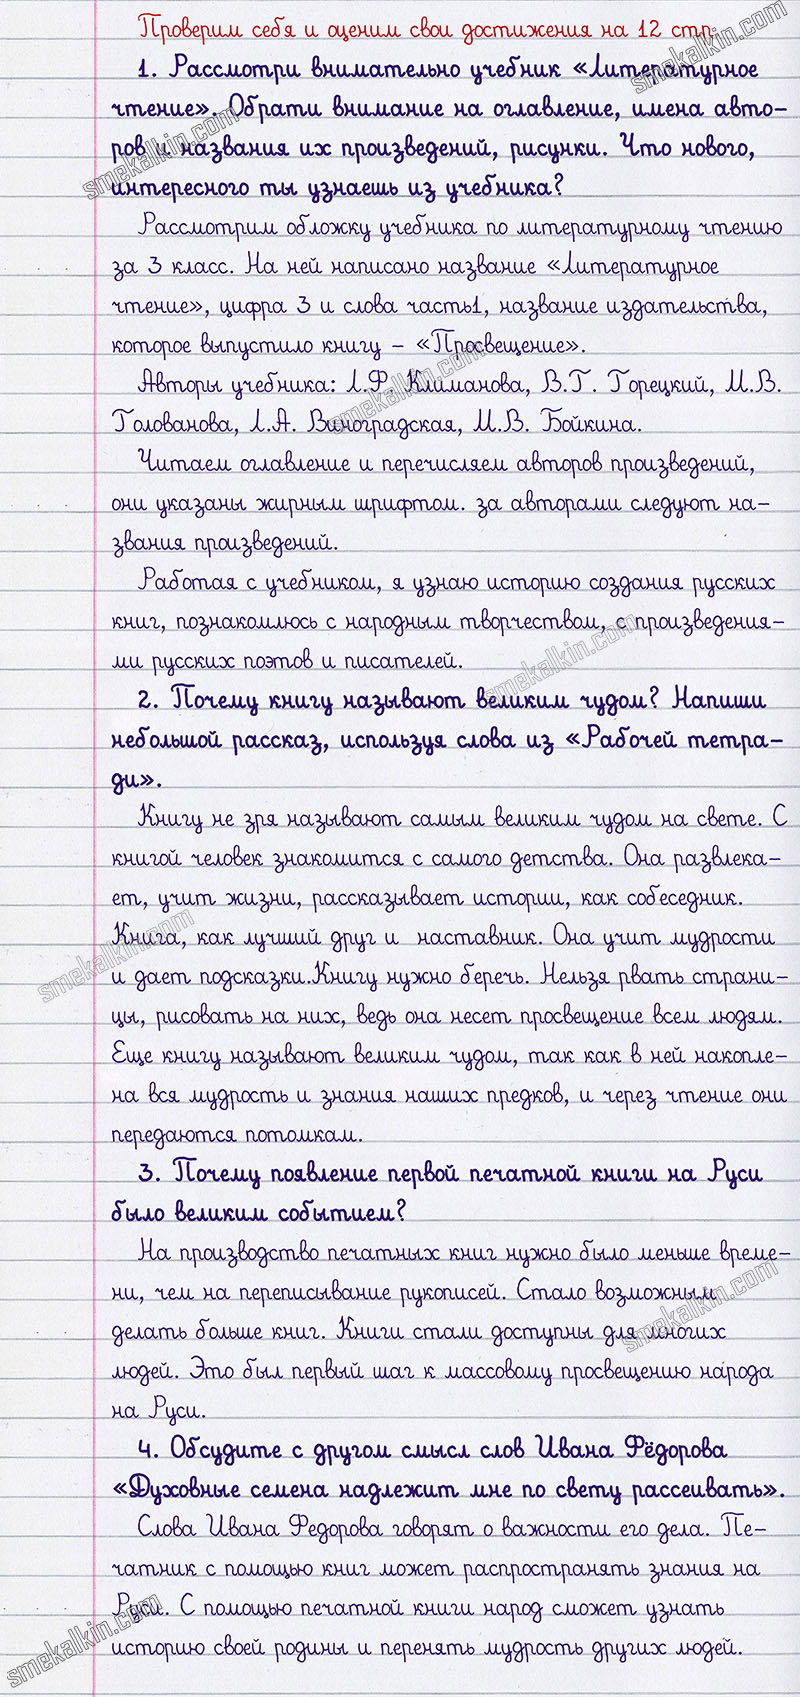 Проверим себя и оценим свои достижения на 12 стр.
1. Рассмотри внимательно учебник «Литературное
чтение». Обрати внимание на оглавление, имена авто-
ров и названия их произведений, рисунки. Что нового,
интересного ты узнаешь из учебника?
Рассмотрим обложку учебника по литературному чтению
за 3 класс. На ней написано название «Литературное
чтение», цифра 3 и слова часть1, название издательства,
которое выпустило книгу – «Просвещение».
Авторы учебника: Л.Ф. Климанова, В.Г. Горецкий, М.В.
Голованова, Л.А. Виноградская, М.В. Бойкина.
Читаем оглавление и перечисляем авторов произведений,
они указаны жирным шрифтом. за авторами следуют на-
звания произведений.
Работая с учебником, я узнаю историю создания русских
книг, познакомлюсь с народным творчеством, с произведения-
ми русских поэтов и писателей.
2. Почему книгу называют великим чудом? Напиши
небольшой рассказ, используя слова из «Рабочей тетра-
ди».
Книгу не зря называют самым великим чудом на свете. С
книгой человек знакомится с самого детства. Она развлека-
ет, учит жизни, рассказывает истории, как собеседник.
Книга, как лучший друг и наставник. Она учит мудрости
и дает подсказки.Книгу нужно беречь. Нельзя рвать страни-
цы, рисовать на них, ведь она несет просвещение всем людям.
Еще книгу называют великим чудом, так как в ней накопле-
на вся мудрость и знания наших предков, и через чтение они
передаются потомкам.
3. Почему появление первой печатной книги на Руси
было великим событием?
На производство печатных книг нужно было меньше време-
ни, чем на переписывание рукописей. Стало возможным
делать больше книг. Книги стали доступны для многих
людей. Это был первый шаг к массовому просвещению народа
на Руси.
4. Обсудите с другом смысл слов Ивана Фёдорова
«Духовные семена надлежит мне по свету рассеивать».
Слова Ивана Федорова говорят о важности его дела. Пе-
чатник с помощью книг может распространять знания на
Руси. С помощью печатной книги народ сможет узнать
историю своей родины и перенять мудрость других людей.
smekalkin.com
smekalkin.com
smekalkin.com
smekalkin.com
smekalkin.com
smekalkin.com
smekalkin.com